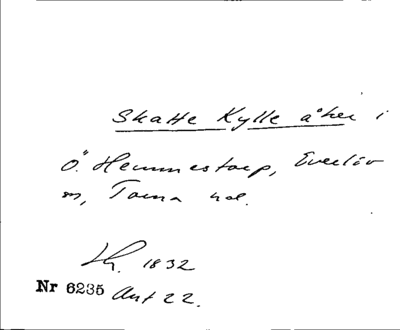 Skatte Kylle åker i
Ö. Hemmestorp, Everlöv
sn, Torna hd.
Lh. 1832
Nr 6235 Akt 22.